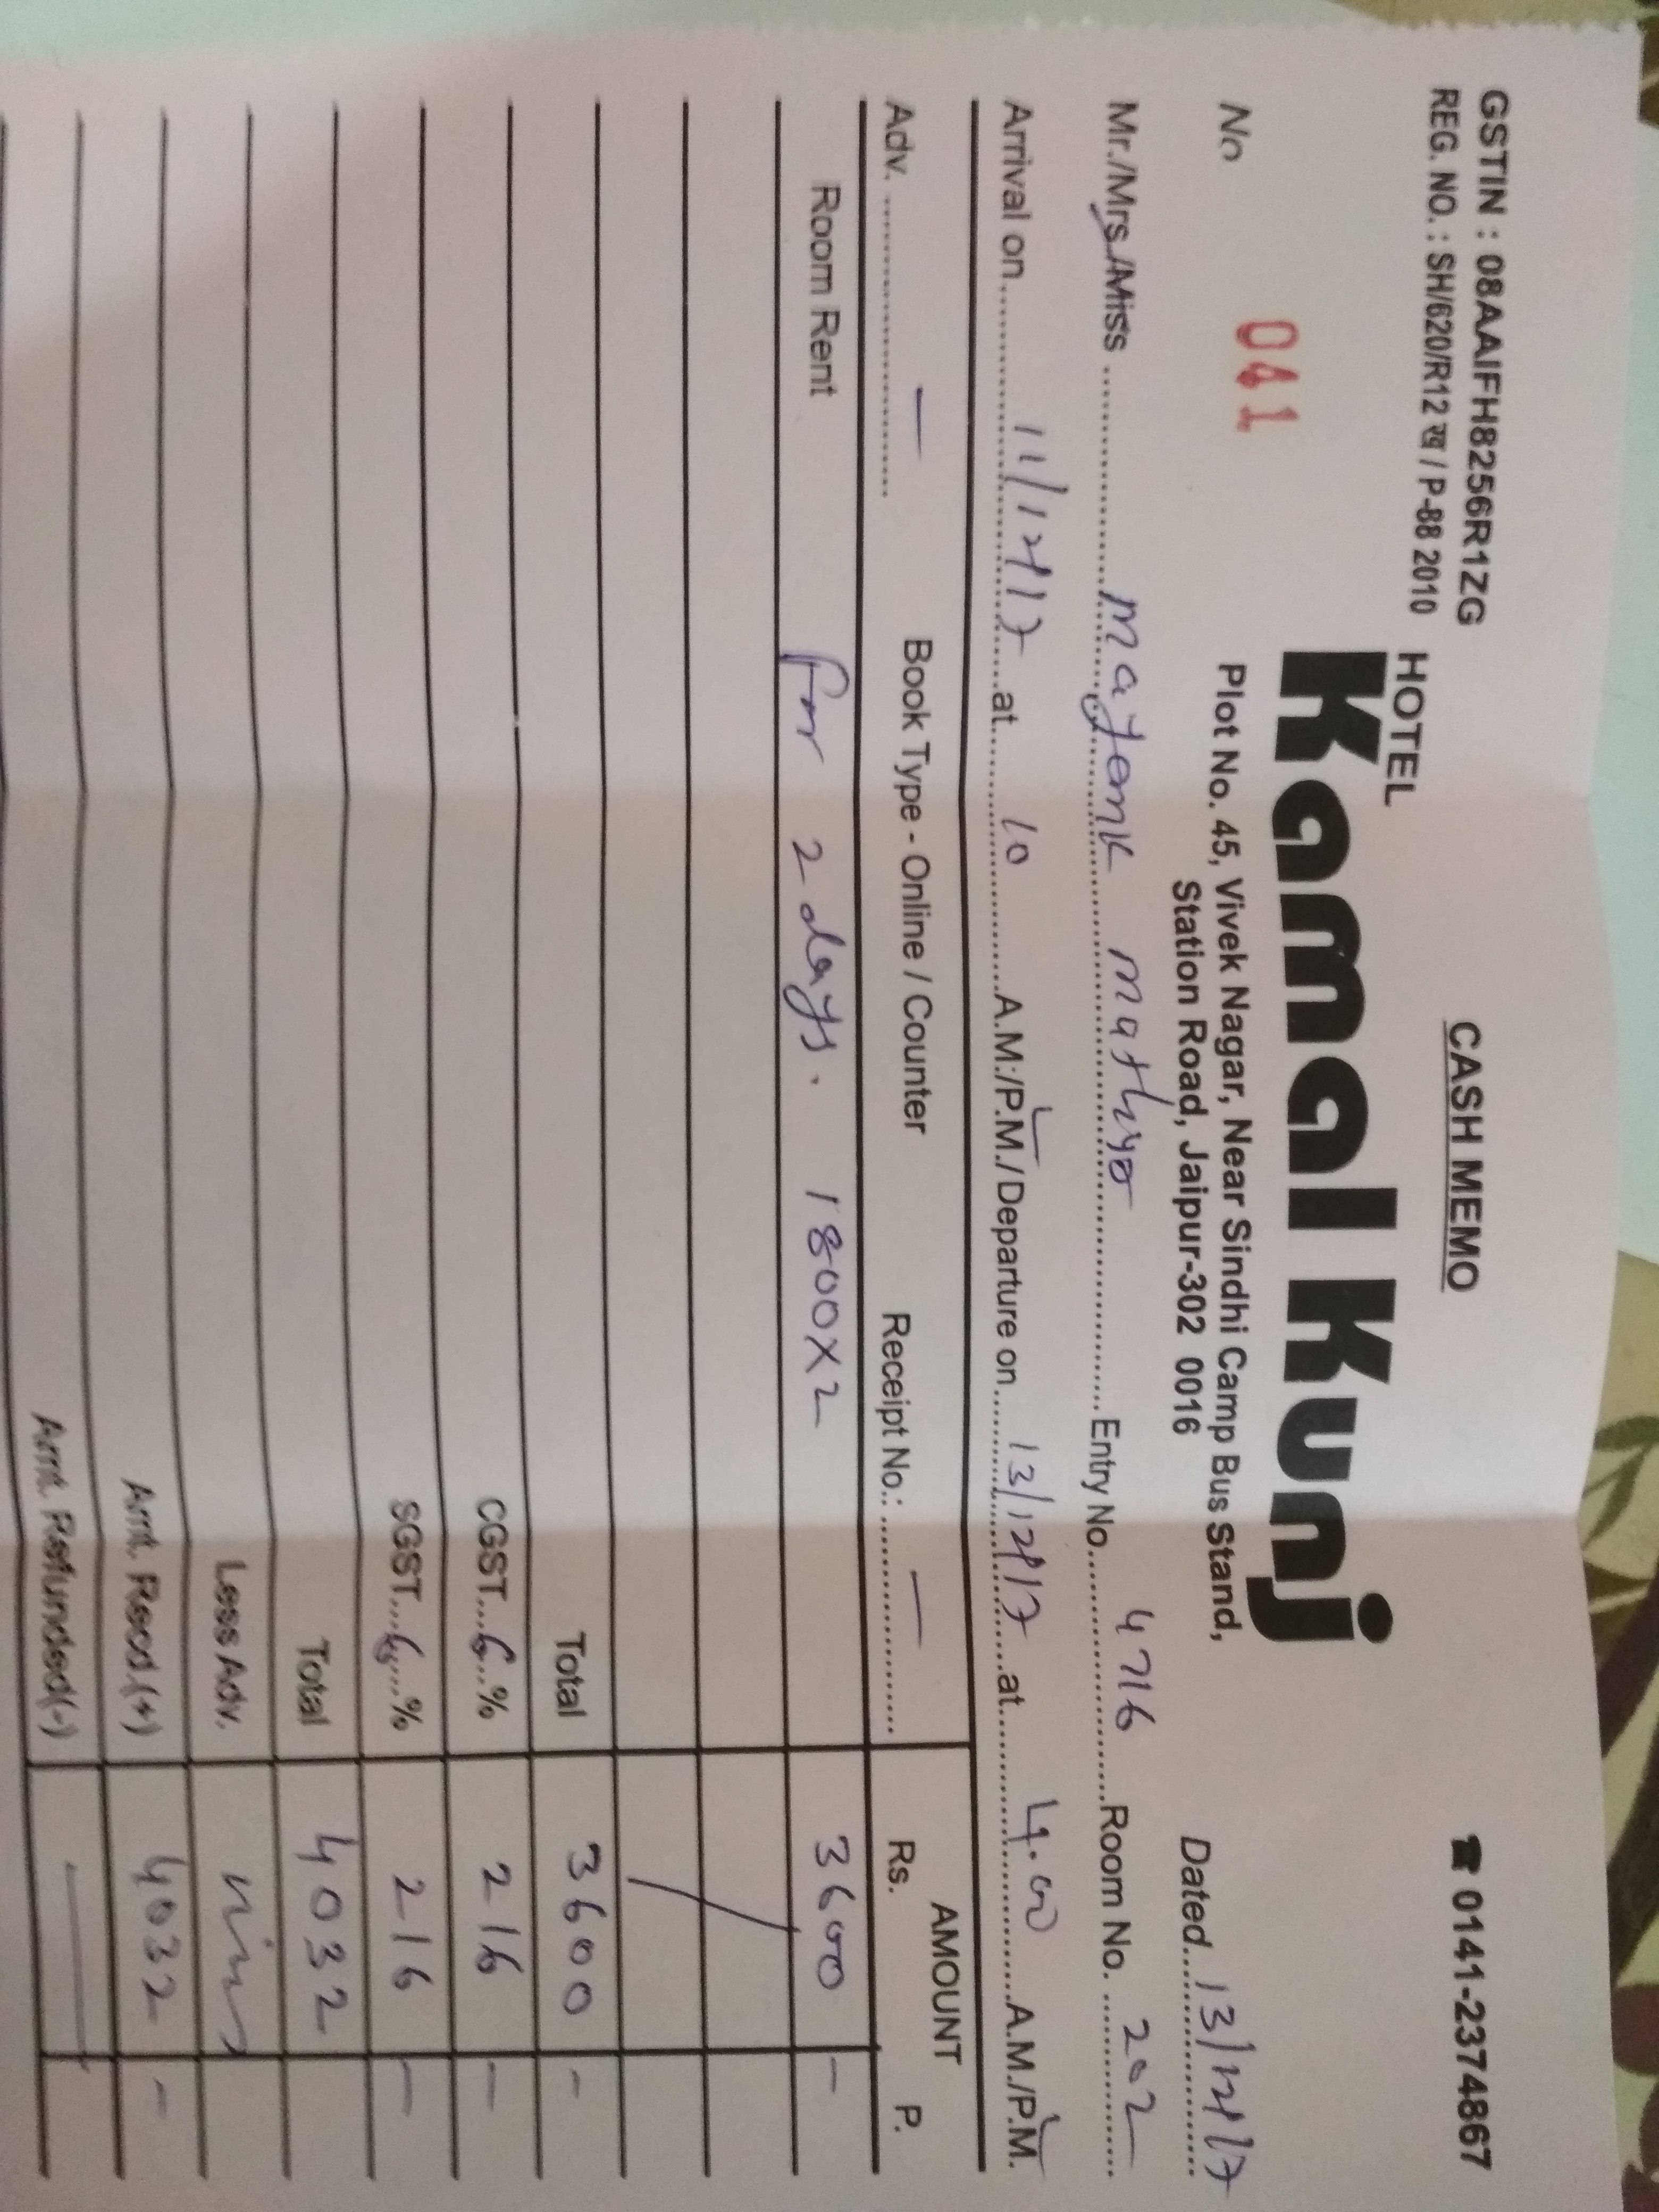 GSTIN : 08AAIFH8256R1ZG CASH MEMO ☎ 0141-2374867
REG. NO. : SH/620/R12 ख / P-88 2010
HOTEL
Kamal Kunj
Plot No. 45, Vivek Nagar, Near Sindhi Camp Bus Stand,
Station Road, Jaipur-302 0016
No 041 Dated 13/12/17
Mr./Mrs./Miss mayank mathur Entry No. 4716 Room No. 202
Arrival on 11/12/17 at 10 A.M./P.M./Departure on 13/12/17 at 4.00 A.M./P.M.
Adv. — Book Type - Online / Counter Receipt No.: —
AMOUNT
Rs. P.
Room Rent for 2 days. 1800X2 3600 -
Total 3600 -
CGST...6...% 216 -
SGST...6...% 216 -
Total 4032
Less Adv.
Amt. Recd.(+) 4032 -
Amt. Refunded(-) —